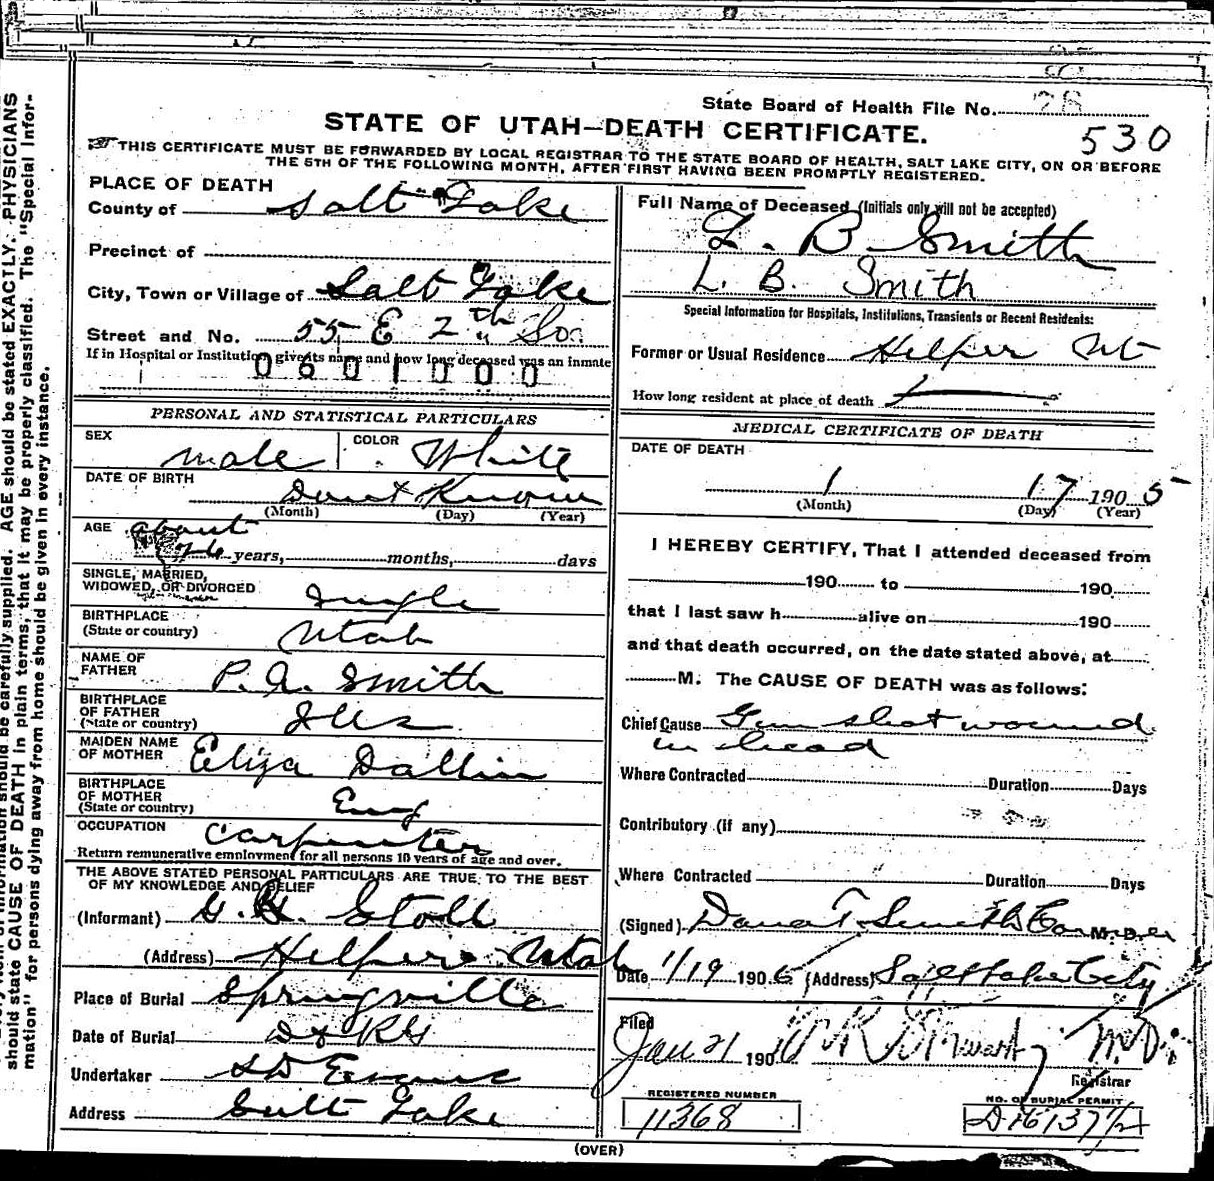 State Board of Health File No. 26
530
STATE OF UTAH—DEATH CERTIFICATE.
THIS CERTIFICATE MUST BE FORWARDED BY LOCAL REGISTRAR TO THE STATE BOARD OF HEALTH, SALT LAKE CITY, ON OR BEFORE
THE 5TH OF THE FOLLOWING MONTH, AFTER FIRST HAVING BEEN PROMPTLY REGISTERED.
PLACE OF DEATH
County of Salt Lake
Precinct of
City, Town or Village of Salt Lake
Street and No. 55 E 2nd So
If in Hospital or Institution, give its name and how long deceased was an inmate
0601000
PERSONAL AND STATISTICAL PARTICULARS
SEX male COLOR White
DATE OF BIRTH Dont Know
(Month) (Day) (Year)
AGE about
26 years, months, days
SINGLE, MARRIED,
WIDOWED, OR DIVORCED Single
BIRTHPLACE
(State or country) Utah
NAME OF
FATHER P. A. Smith
BIRTHPLACE
OF FATHER
(State or country) Ills
MAIDEN NAME
OF MOTHER Eliza Dallin
BIRTHPLACE
OF MOTHER
(State or country) Eng
OCCUPATION Carpenter
Return remunerative employment for all persons 10 years of age and over.
THE ABOVE STATED PERSONAL PARTICULARS ARE TRUE TO THE BEST
OF MY KNOWLEDGE AND BELIEF
(Informant) G. H. Stoll
(Address) Helper Utah
Place of Burial Springville
Date of Burial D & RG
Undertaker S D Evans
Address Salt Lake
Full Name of Deceased (Initials only will not be accepted)
L. B Smith
L. B. Smith
Special Information for Hospitals, Institutions, Transients or Recent Residents:
Former or Usual Residence Helper Ut
How long resident at place of death
MEDICAL CERTIFICATE OF DEATH
DATE OF DEATH
1 17 1905
(Month) (Day) (Year)
I HEREBY CERTIFY, That I attended deceased from
190 to 190
that I last saw h alive on 190
and that death occurred, on the date stated above, at
M. The CAUSE OF DEATH was as follows:
Chief Cause Gun shot wound
in head
Where Contracted Duration Days
Contributory (if any)
Where Contracted Duration Days
(Signed) Dana T Smith Coroner M. D.
Date 1/19 1906 (Address) Salt Lake City
Filed
Jan 21 190 Stewart M.D.
Registrar
REGISTERED NUMBER
11368
NO. OF BURIAL PERMIT
D 16137 1/2
(OVER)
be carefully supplied. AGE should be stated EXACTLY. PHYSICIANS
should state CAUSE OF DEATH in plain terms, that it may be properly classified. The "Special Infor-
mation" for persons dying away from home should be given in every instance.